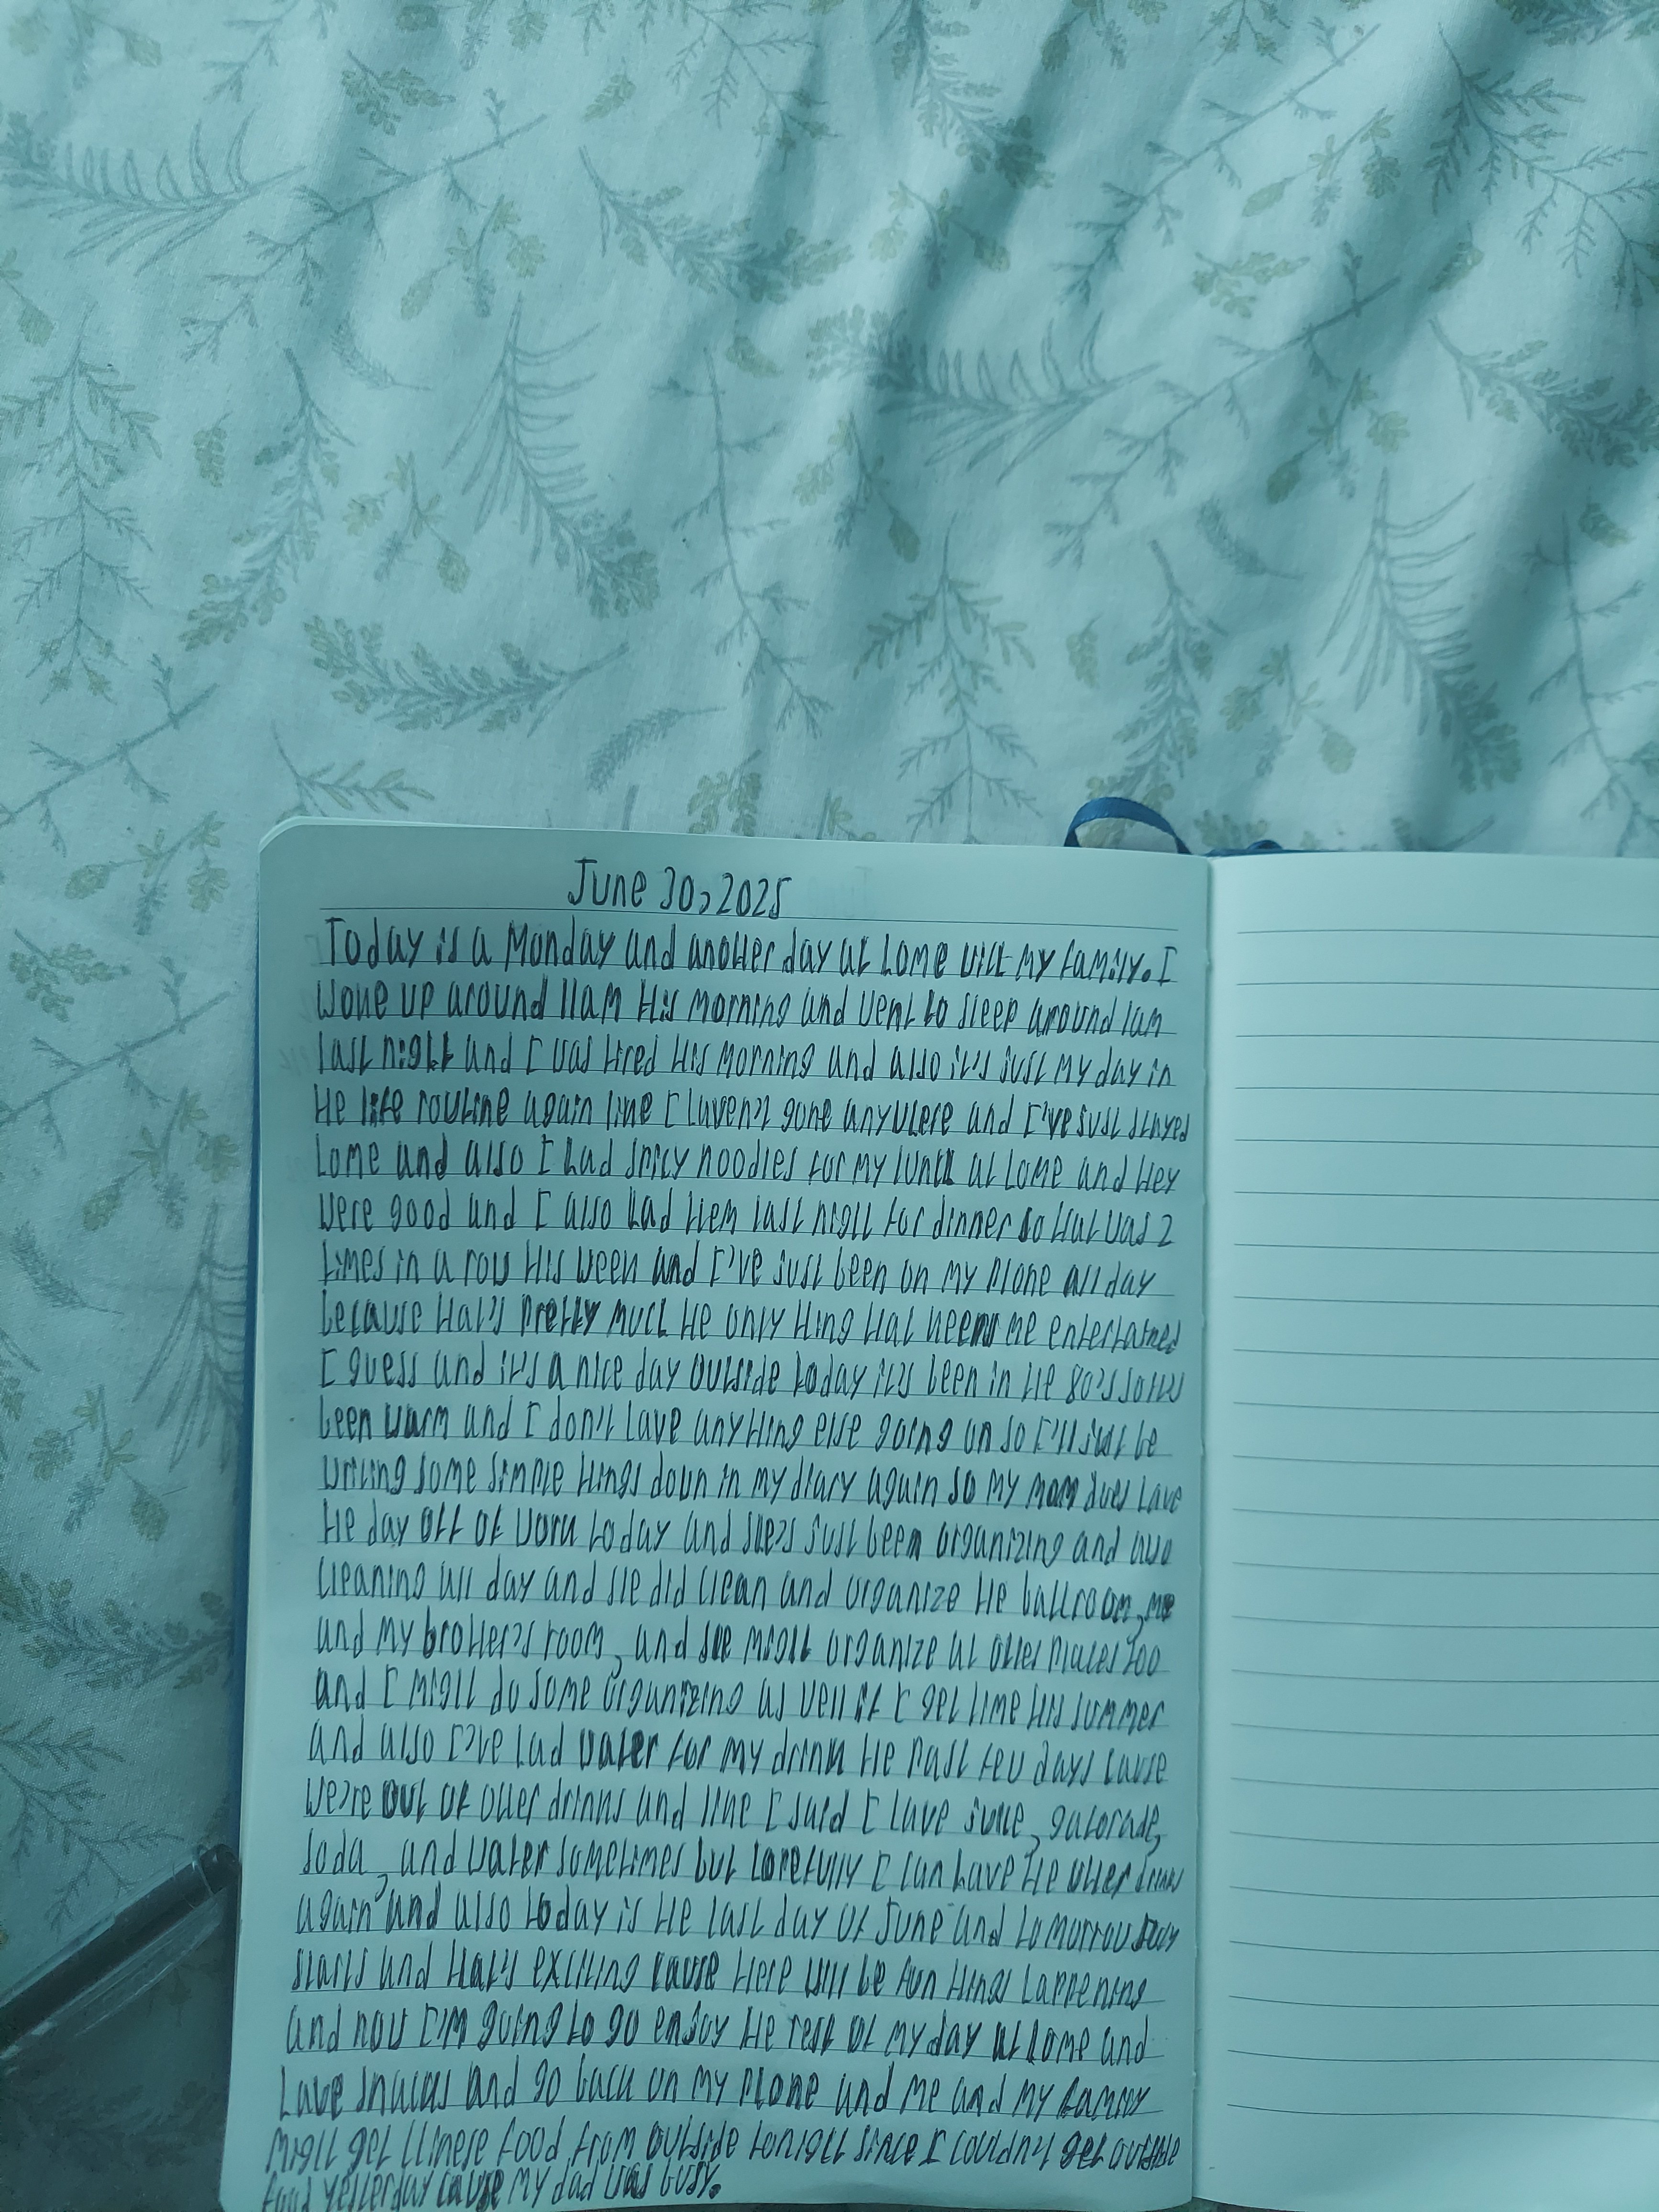 June 30, 2025
Today is a Monday and another day at home with my family. I
woke up around 11am this morning and went to sleep around 1am
last night and I was tired this morning and also it's just my day in
the life routine again like I haven't gone anywhere and I've just stayed
home and also I had spicy noodles for my lunch at home and they
were good and I also had them last night for dinner so that was 2
times in a row this week and I've just been on my phone all day
because that's pretty much the only thing that keeps me entertained
I guess and it's a nice day outside today it's been in the 80's so it's
been warm and I don't have anything else going on so I'll just be
writing some simple things down in my diary again so my mom does have
the day off of work today and she's just been organizing and also
cleaning all day and she did clean and organize the bathroom, me
and my brother's room, and she might organize at other places too
and I might do some organizing as well if I get time this summer
and also I've had water for my drink the past few days cause
we're out of other drinks and like I said I have juice, gatorade,
soda, and water sometimes but hopefully I can have the other drinks
again and also today is the last day of June and tomorrow July
starts and that's exciting cause there will be fun things happening
and now I'm going to go enjoy the rest of my day at home and
have snacks and go back on my phone and me and my family
might get Chinese food from outside tonight since I couldn't get outside
food yesterday cause my dad was busy.